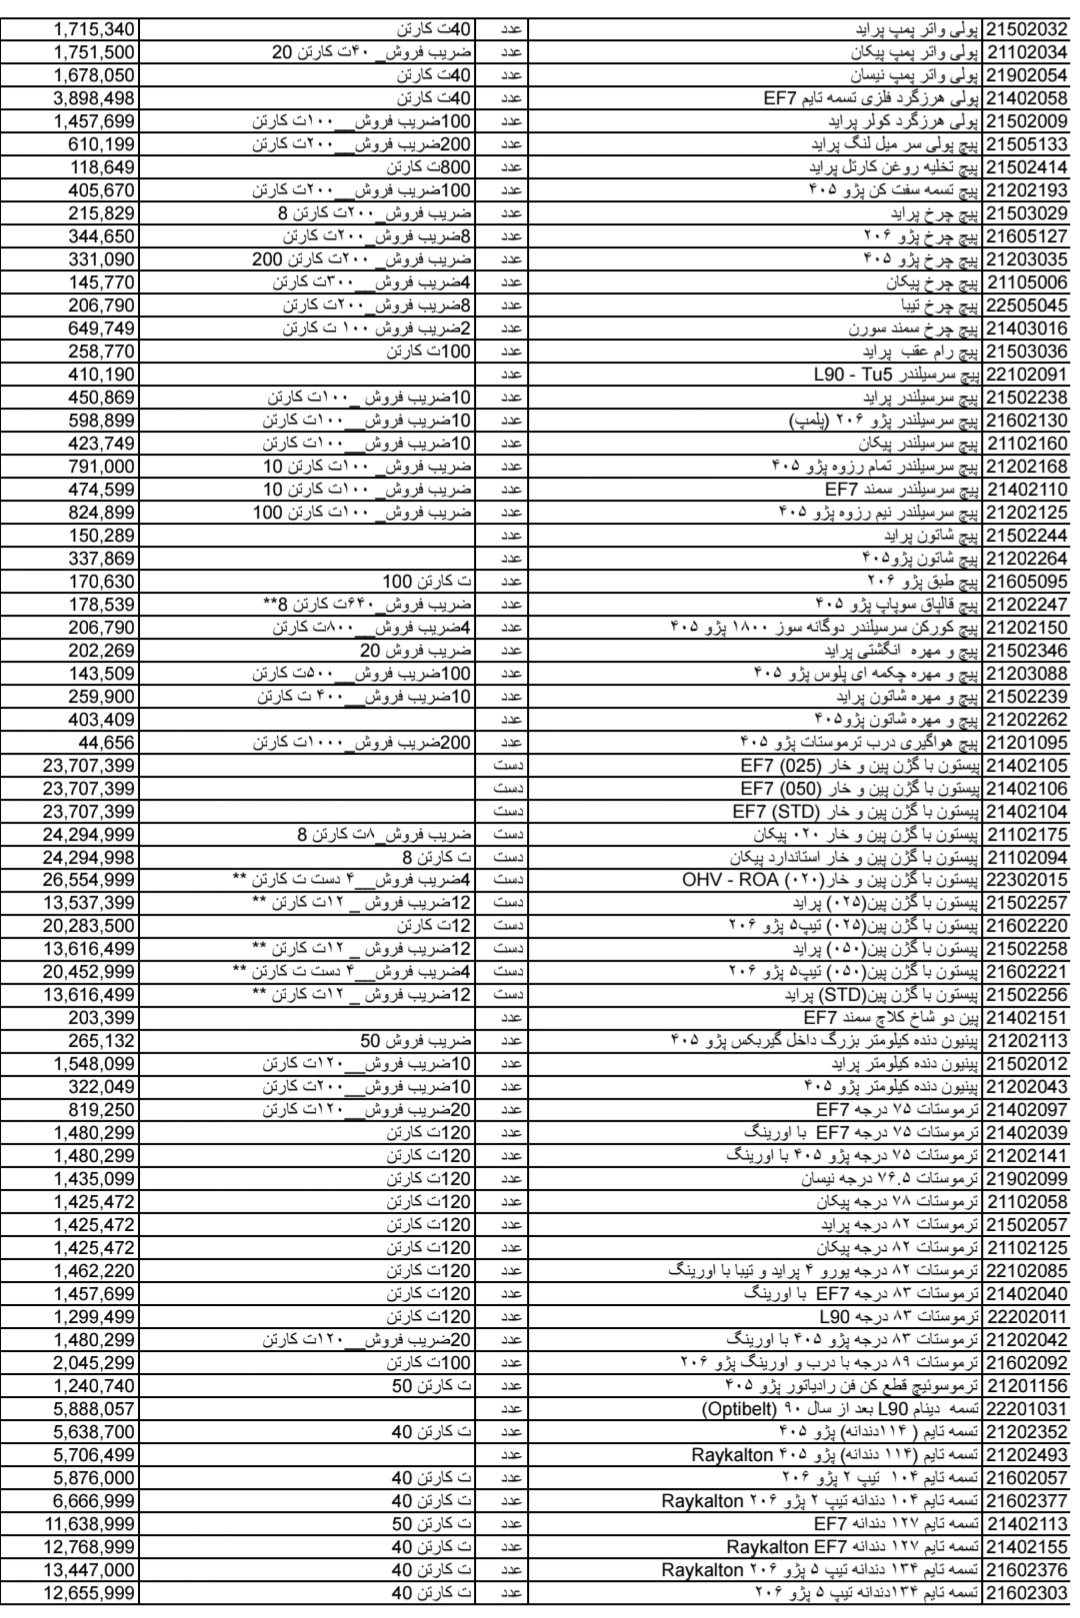 21502032 پولی واتر پمپ پراید عدد 40ت کارتن 1,715,340
21102034 پولی واتر پمپ پیکان عدد ضریب فروش_ ۴۰ت کارتن 20 1,751,500
21902054 پولی واتر پمپ نیسان عدد 40ت کارتن 1,678,050
21402058 پولی هرزگرد فلزی تسمه تایم EF7 عدد 40ت کارتن 3,898,498
21502009 پولی هرزگرد کولر پراید عدد 100ضریب فروش__۱۰۰ت کارتن 1,457,699
21505133 پیچ پولی سر میل لنگ پراید عدد 200ضریب فروش__۲۰۰ت کارتن 610,199
21502414 پیچ تخلیه روغن کارتل پراید عدد 800ت کارتن 118,649
21202193 پیچ تسمه سفت کن پژو ۴۰۵ عدد 100ضریب فروش__۲۰۰ت کارتن 405,670
21503029 پیچ چرخ پراید عدد ضریب فروش_۲۰۰ت کارتن 8 215,829
21605127 پیچ چرخ پژو ۲۰۶ عدد 8ضریب فروش_۲۰۰ت کارتن 344,650
21203035 پیچ چرخ پژو ۴۰۵ عدد ضریب فروش_ ۲۰۰ت کارتن 200 331,090
21105006 پیچ چرخ پیکان عدد 4ضریب فروش__۳۰۰ت کارتن 145,770
22505045 پیچ چرخ تیبا عدد 8ضریب فروش_۲۰۰ت کارتن 206,790
21403016 پیچ چرخ سمند سورن عدد 2ضریب فروش ۱۰۰ ت کارتن 649,749
21503036 پیچ رام عقب پراید عدد 100ت کارتن 258,770
22102091 پیچ سرسیلندر L90 - Tu5 عدد 410,190
21502238 پیچ سرسیلندر پراید عدد 10ضریب فروش _۱۰۰ت کارتن 450,869
21602130 پیچ سرسیلندر پژو ۲۰۶ (پلمپ) عدد 10ضریب فروش__۱۰۰ت کارتن 598,899
21102160 پیچ سرسیلندر پیکان عدد 10ضریب فروش__۱۰۰ت کارتن 423,749
21202168 پیچ سرسیلندر تمام رزوه پژو ۴۰۵ عدد ضریب فروش_ ۱۰۰ت کارتن 10 791,000
21402110 پیچ سرسیلندر سمند EF7 عدد ضریب فروش_ ۱۰۰ت کارتن 10 474,599
21202125 پیچ سرسیلندر نیم رزوه پژو ۴۰۵ عدد ضریب فروش_ ۱۰۰ت کارتن 100 824,899
21502244 پیچ شاتون پراید عدد 150,289
21202264 پیچ شاتون پژو۴۰۵ عدد 337,869
21605095 پیچ طبق پژو ۲۰۶ عدد ت کارتن 100 170,630
21202247 پیچ قالپاق سوپاپ پژو ۴۰۵ عدد ضریب فروش_ ۶۴۰ت کارتن 8** 178,539
21202150 پیچ کورکن سرسیلندر دوگانه سوز ۱۸۰۰ پژو ۴۰۵ عدد 4ضریب فروش__۸۰۰ت کارتن 206,790
21502346 پیچ و مهره انگشتی پراید عدد ضریب فروش 20 202,269
21203088 پیچ و مهره چکمه ای پلوس پژو ۴۰۵ عدد 100ضریب فروش__۵۰۰ت کارتن 143,509
21502239 پیچ و مهره شاتون پراید عدد 10ضریب فروش__۴۰۰ ت کارتن 259,900
21202262 پیچ و مهره شاتون پژو۴۰۵ عدد 403,409
21201095 پیچ هواگیری درب ترموستات پژو ۴۰۵ عدد 200ضریب فروش_۱۰۰۰ت کارتن 44,656
21402105 پیستون با گژن پین و خار (025) EF7 دست 23,707,399
21402106 پیستون با گژن پین و خار (050) EF7 دست 23,707,399
21402104 پیستون با گژن پین و خار (STD) EF7 دست 23,707,399
21102175 پیستون با گژن پین و خار ۰۲۰ پیکان دست ضریب فروش_۸ت کارتن 8 24,294,999
21102094 پیستون با گژن پین و خار استاندارد پیکان دست ت کارتن 8 24,294,998
22302015 پیستون با گژن پین و خار(۰۲۰) OHV - ROA دست 4ضریب فروش__۴ دست ت کارتن ** 26,554,999
21502257 پیستون با گژن پین(۰۲۵) پراید دست 12ضریب فروش _ ۱۲ت کارتن ** 13,537,399
21602220 پیستون با گژن پین(۰۲۵) تیپ۵ پژو ۲۰۶ دست 12ت کارتن 20,283,500
21502258 پیستون با گژن پین(۰۵۰) پراید دست 12ضریب فروش _ ۱۲ت کارتن ** 13,616,499
21602221 پیستون با گژن پین(۰۵۰) تیپ۵ پژو ۲۰۶ دست 4ضریب فروش__۴ دست ت کارتن ** 20,452,999
21502256 پیستون با گژن پین(STD) پراید دست 12ضریب فروش _ ۱۲ت کارتن ** 13,616,499
21402151 پین دو شاخ کلاچ سمند EF7 عدد 203,399
21202113 پینیون دنده کیلومتر بزرگ داخل گیربکس پژو ۴۰۵ عدد ضریب فروش 50 265,132
21502012 پینیون دنده کیلومتر پراید عدد 10ضریب فروش__۱۲۰ت کارتن 1,548,099
21202043 پینیون دنده کیلومتر پژو ۴۰۵ عدد 10ضریب فروش__۲۰۰ت کارتن 322,049
21402097 ترموستات ۷۵ درجه EF7 عدد 20ضریب فروش__۱۲۰ت کارتن 819,250
21402039 ترموستات ۷۵ درجه EF7 با اورینگ عدد 120ت کارتن 1,480,299
21202141 ترموستات ۷۵ درجه پژو ۴۰۵ با اورینگ عدد 120ت کارتن 1,480,299
21902099 ترموستات ۷۶.۵ درجه نیسان عدد 120ت کارتن 1,435,099
21102058 ترموستات ۷۸ درجه پیکان عدد 120ت کارتن 1,425,472
21502057 ترموستات ۸۲ درجه پراید عدد 120ت کارتن 1,425,472
21102125 ترموستات ۸۲ درجه پیکان عدد 120ت کارتن 1,425,472
22102085 ترموستات ۸۲ درجه یورو ۴ پراید و تیبا با اورینگ عدد 120ت کارتن 1,462,220
21402040 ترموستات ۸۳ درجه EF7 با اورینگ عدد 120ت کارتن 1,457,699
22202011 ترموستات ۸۳ درجه L90 عدد 120ت کارتن 1,299,499
21202042 ترموستات ۸۳ درجه پژو ۴۰۵ با اورینگ عدد 20ضریب فروش__۱۲۰ت کارتن 1,480,299
21602092 ترموستات ۸۹ درجه با درب و اورینگ پژو ۲۰۶ عدد 100ت کارتن 2,045,299
21201156 ترموسوئیچ قطع کن فن رادیاتور پژو ۴۰۵ عدد ت کارتن 50 1,240,740
22201031 تسمه دینام L90 بعد از سال ۹۰ (Optibelt) عدد 5,888,057
21202352 تسمه تایم ( ۱۱۴دندانه) پژو ۴۰۵ عدد ت کارتن 40 5,638,700
21202493 تسمه تایم (۱۱۴ دندانه) پژو ۴۰۵ Raykalton عدد 5,706,499
21602057 تسمه تایم ۱۰۴ تیپ ۲ پژو ۲۰۶ عدد ت کارتن 40 5,876,000
21602377 تسمه تایم ۱۰۴ دندانه تیپ ۲ پژو ۲۰۶ Raykalton عدد ت کارتن 40 6,666,999
21402113 تسمه تایم ۱۲۷ دندانه EF7 عدد ت کارتن 50 11,638,999
21402155 تسمه تایم ۱۲۷ دندانه Raykalton EF7 عدد ت کارتن 40 12,768,999
21602376 تسمه تایم ۱۳۴ دندانه تیپ ۵ پژو ۲۰۶ Raykalton عدد ت کارتن 40 13,447,000
21602303 تسمه تایم ۱۳۴دندانه تیپ ۵ پژو ۲۰۶ عدد ت کارتن 40 12,655,999